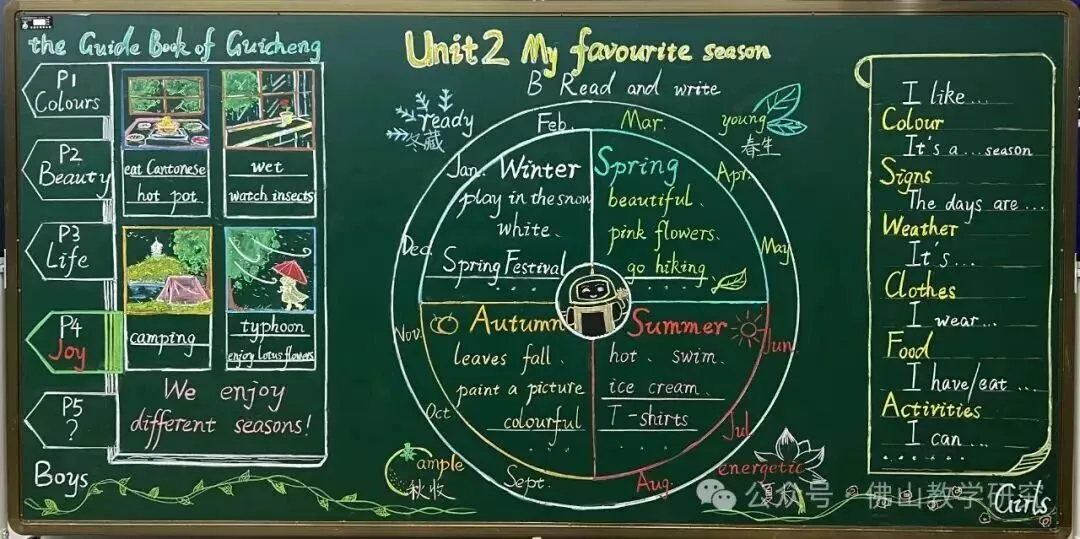 the Guide Book of Guicheng
P1
Colours
P2
Beauty
P3
Life
P4
Joy
P5
?
eat Cantonese
hot pot
wet
watch insects
camping
typhoon
enjoy lotus flowers
We enjoy
different seasons!
Boys
Unit 2 My favourite season
B Read and write
ready
冬藏
young
春生
ample
秋收
energetic
夏
Jan.
Feb.
Mar.
Apr.
May
Jun.
Jul
Aug.
Sept.
Oct
Nov.
Dec.
Winter
play in the snow
white.
Spring Festival
Spring
beautiful.
pink flowers.
go hiking.
Autumn
leaves fall.
paint a picture
colourful
Summer
hot. swim.
ice cream.
T-shirts
I like...
Colour
It's a ... season
Signs
The days are ...
Weather
It's ...
Clothes
I wear...
Food
I have/eat ...
Activities
I can ...
......
Girls
公众号 · 佛山教学研究